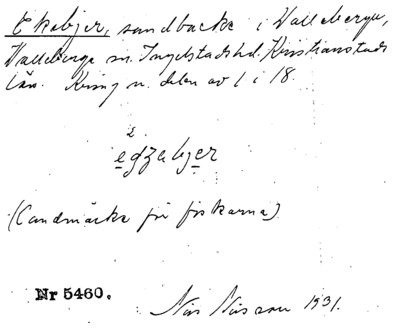 Ekebjer, sandbacke i Valleberga,
Valleberga sn. Ingelstads hd. Kristianstads
län. Kring n. delen av 1 i 18.
2
egzabjer
(Landmärke för fiskarna)
Nr 5460.
Nils Nilsson 1931.